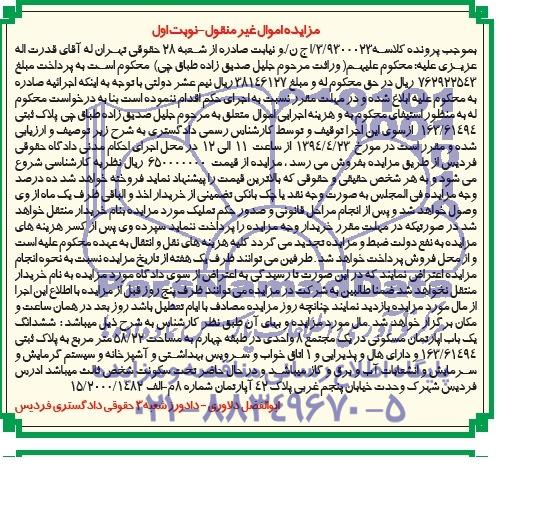 مزایده اموال غیر منقول-نوبت اول
بموجب پرونده کلاسه ۳/۹۳۰۰۰۲۳/ج ا/ن و نیابت صادره از شعبه ۲۸ حقوقی تهران له آقای قدرت اله
عزیزی علیه: محکوم علیهم( وراثت مرحوم جلیل صدیق زاده طباق چی) محکوم است به پرداخت مبلغ
۷۶۲۹۲۲۵۴۳ ریال در حق محکوم له و مبلغ ۳۸۱۴۶۱۲۷ ریال نیم عشر دولتی با توجه به اینکه اجرائیه صادره
به محکوم علیه ابلاغ شده و در مهلت مقرر نسبت به اجرای حکم اقدام ننموده است بنا به درخواست محکوم
له به منظور استیفای محکوم به و هزینه اجرایی اموال متعلق به مرحوم جلیل صدیق زاده طباق چی پلاک ثبتی
۱۶۳/۶۱۴۹۴ از سوی این اجرا توقیف و توسط کارشناس رسمی دادگستری به شرح زیر توصیف و ارزیابی
شده و مقرر است در مورخ ۱۳۹۴/۴/۲۳ از ساعت ۱۱ الی ۱۲ در محل اجرای احکام مدنی دادگاه حقوقی
فردیس از طریق مزایده بفروش می رسد ، مزایده از قیمت ۶۵۰۰۰۰۰۰۰ ریال نظریه کارشناسی شروع
می شود و به هر شخص حقیقی و حقوقی که بالاترین قیمت را پیشنهاد نماید فروخته خواهد شد ده درصد
وجه مزایده فی المجلس به صورت وجه نقد یا چک بانکی تضمینی از خریدار اخذ و الباقی ظرف یک ماه از وی
وصول خواهد شد و پس از انجام مراحل قانونی و صدور حکم تملیک مورد مزایده بنام خریدار منتقل خواهد
شد در صورتیکه در مهلت مقرر خریدار وجه مزایده را پرداخت ننماید سپرده وی پس از کسر هزینه های
مزایده به نفع دولت ضبط و مزایده تجدید می گردد کلیه هزینه های نقل و انتقال به عهده محکوم علیه است
و از محل فروش پرداخت خواهد شد. طرفین می توانند ظرف یک هفته از تاریخ مزایده نسبت به نحوه انجام
مزایده اعتراض نمایند که در این صورت تا رسیدگی به اعتراض از سوی دادگاه مورد مزایده به نام خریدار
منتقل نخواهد شد ضمنا طالبین به شرکت در مزایده می توانند ظرف پنج روز قبل از مزایده با اطلاع این اجرا
از مال مورد مزایده بازدید نمایند چنانچه روز مزایده مصادف با ایام تعطیل باشد روز بعد در همان ساعت و
مکان برگزار خواهد شد. مال مورد مزایده و بهای آن طبق نظر کارشناس به شرح ذیل میباشد : ششدانگ
یک باب اپارتمان مسکونی در یک مجتمع ۸ واحدی در طبقه چهارم به مساحت ۵۸/۲۲ متر مربع به پلاک ثبتی
۱۶۳/۶۱۴۹۴ و دارای هال و پذیرایی و ۱ اتاق خواب و سرویس بهداشتی و آشپزخانه و سیستم گرمایش و
سرمایش و انشعابات آب و برق و گاز میباشد و در حال حاضر تحت سکونت شخص ثالث میباشد ادرس
فردیس شهرک وحدت خیابان پنجم غربی پلاک ۴۲ آپارتمان شماره ۸ م-الف ۱۵/۲۰۰۰/۱۴۸۲
ابوالفضل دلاوری - دادورز شعبه ۳ حقوقی دادگستری فردیس
۰۲۱-۸۸۳۴۹۶۷۰-۵